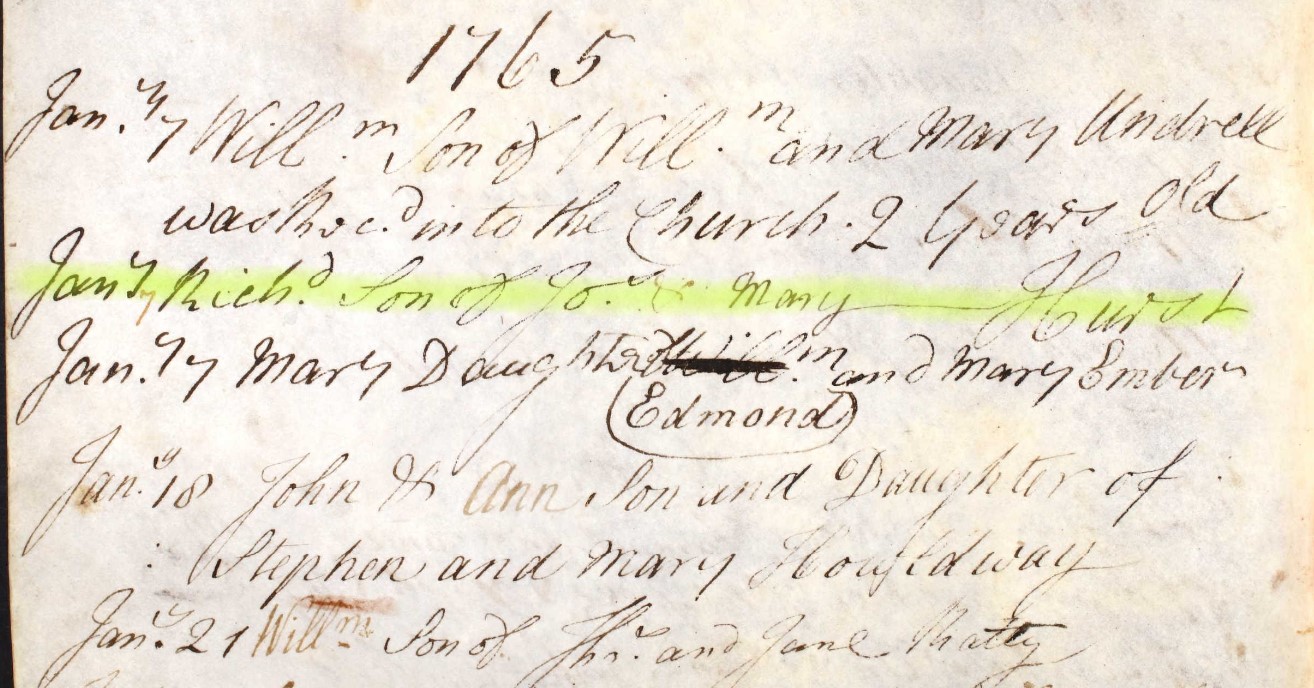 1765
Jan.y 7 Will.m Son of Will.m and Mary Undrell
was Rec.d into the Church. 2 Years Old
Jan.y 7 Rich.d Son of Jo.n & Mary Hurst
Jan.y 7 Mary Daughter of Will.m and Mary Ember
(Edmond)
Jan.y 18 John & Ann Son and Daughter of
Stephen and Mary Houldway
Jan.y 21 Will.m Son of and Jane